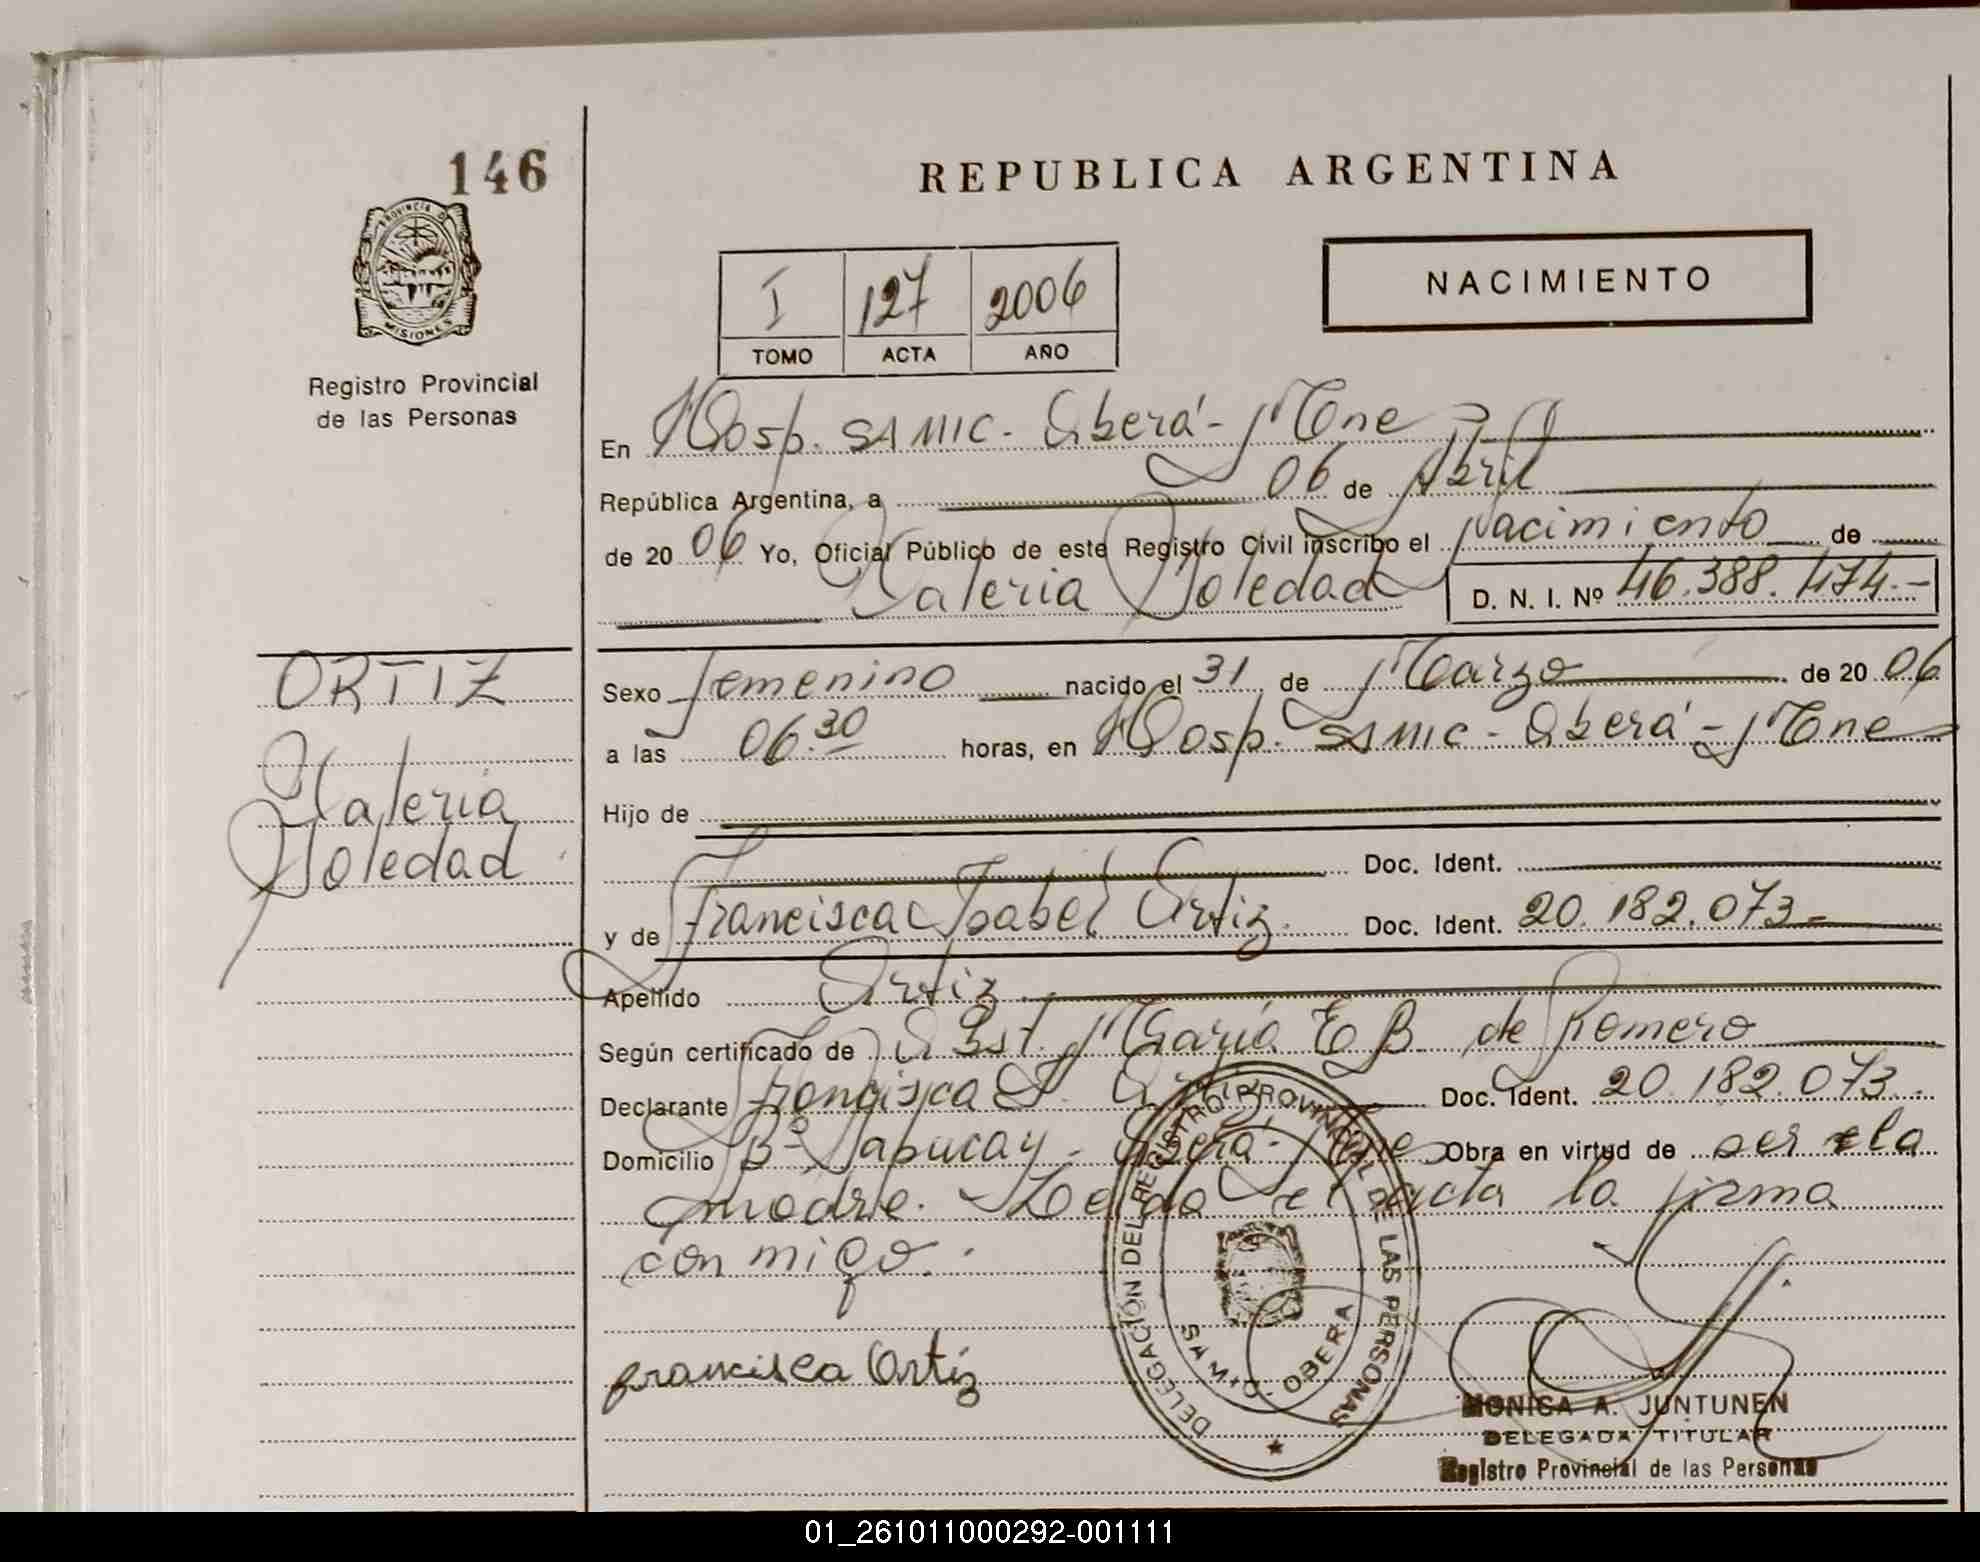 146
REPUBLICA ARGENTINA
PROVINCIA DE
MISIONES
Registro Provincial
de las Personas
I 127 2006
TOMO ACTA AÑO
NACIMIENTO
En Hosp. SAMIC - Oberá - Mnes
República Argentina, a 06 de Abril
de 20 06 Yo, Oficial Público de este Registro Civil inscribo el Nacimiento de
Valeria Soledad D. N. I. Nº 46.388.474.-
ORTIZ
Valeria
Soledad
Sexo femenino nacido el 31 de Marzo de 20 06
a las 06.30 horas, en Hosp. SAMIC - Oberá - Mnes
Hijo de
Doc. Ident.
y de Francisca Isabel Ortiz Doc. Ident. 20.182.073-
Apellido Ortiz
Según certificado de Obst. María E B de Romero
Declarante Francisca I. Doc. Ident. 20.182.073.
Domicilio Bº Sapucay - Oberá - Mnes Obra en virtud de ser la
madre. Leída el acta la firma
conmigo.
francisca Ortiz
DELEGACIÓN DEL REGISTRO PROVINCIAL DE LAS PERSONAS
SAMIC - OBERA
MONICA A. JUNTUNEN
DELEGADA TITULAR
Registro Provincial de las Personas
01_261011000292-001111